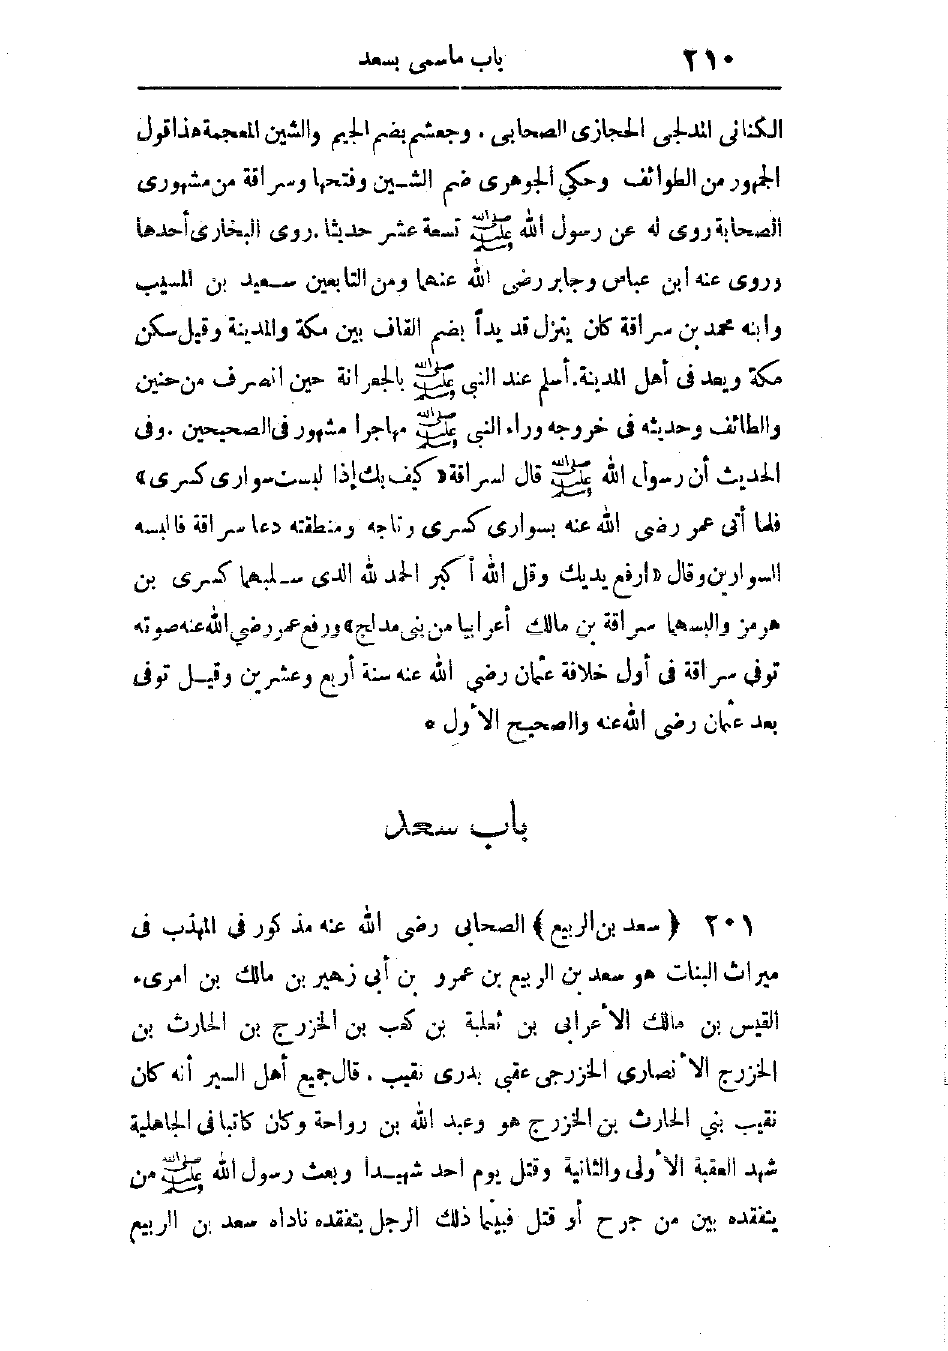 ٢١٠ باب ماسمى بسعد
الكنانى المدلجى الحجازى الصحابى . وجعشم بضم الجيم والشين المعجمة هذا قول
الجمهور من الطوائف وحكي الجوهرى ضم الشين وفتحها وسراقة من مشهورى
الصحابة روى له عن رسول الله ﷺ تسعة عشر حديثا . روى البخارى أحدها
وروى عنه ابن عباس وجابر رضى الله عنهما ومن التابعين سعيد بن المسيب
وابنه محمد بن سراقة كان ينزل قديداً بضم القاف بين مكة والمدينة وقيل سكن
مكة ويعد فى أهل المدينة . أسلم عند النبى ﷺ بالجعرانة حين انصرف من حنين
والطائف وحديثه فى خروجه وراء النبي ﷺ مهاجرا مشهور فى الصحيحين . وفى
الحديث أن رسول الله ﷺ قال لسراقة « كيف بك إذا لبست سوارى كسرى »
فلما أتى عمر رضى الله عنه بسوارى كسرى وتاجه ومنطقته دعا سراقة فالبسه
السوارين وقال « ارفع يديك وقل الله أكبر الحمد لله الذى سلبهما كسرى بن
هرمز والبسهما سراقة بن مالك أعرابيا من بنى مدلج » ورفع عمر رضي الله عنه صوته
توفي سراقة فى أول خلافة عثمان رضي الله عنه سنة أربع وعشرين وقيل توفى
بعد عثمان رضى الله عنه والصحيح الأول *
باب سعد
٢٠١ ﴿ سعد بن الربيع ﴾ الصحابى رضى الله عنه مذكور فى المهذب فى
ميراث البنات هو سعد بن الربيع بن عمرو بن أبي زهير بن مالك بن امرىء
القيس بن مالك الأعرابى بن ثعلبة بن كعب بن الخزرج بن الحارث بن
الخزرج الأنصارى الخزرجى عقبى بدرى نقيب . قال جميع أهل السير أنه كان
نقيب بني الحارث بن الخزرج هو وعبد الله بن رواحة وكان كاتبا فى الجاهلية
شهد العقبة الأولى والثانية وقتل يوم احد شهيدا وبعث رسول الله ﷺ من
يتفقده بين من جرح أو قتل فبينما ذلك الرجل يتفقده ناداه سعد بن الربيع